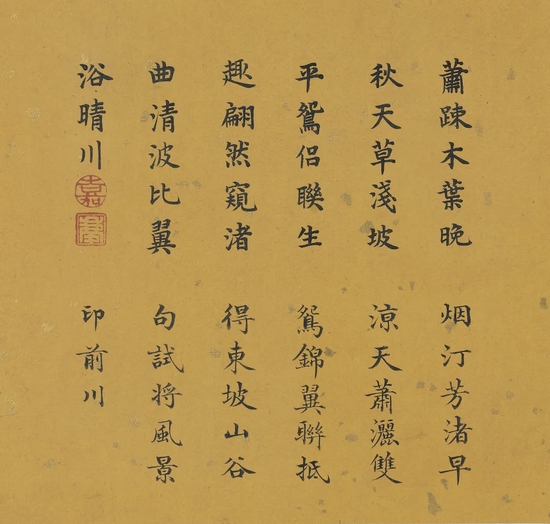 蕭踈木葉晚
秋天草淺坡
平鴛侶聯生
趣翩然窺渚
曲清波比翼
浴晴川
嘉
烟汀芳渚早
涼天蕭灑雙
鴛錦翼聯抵
得東坡山谷
句試將風景
印前川